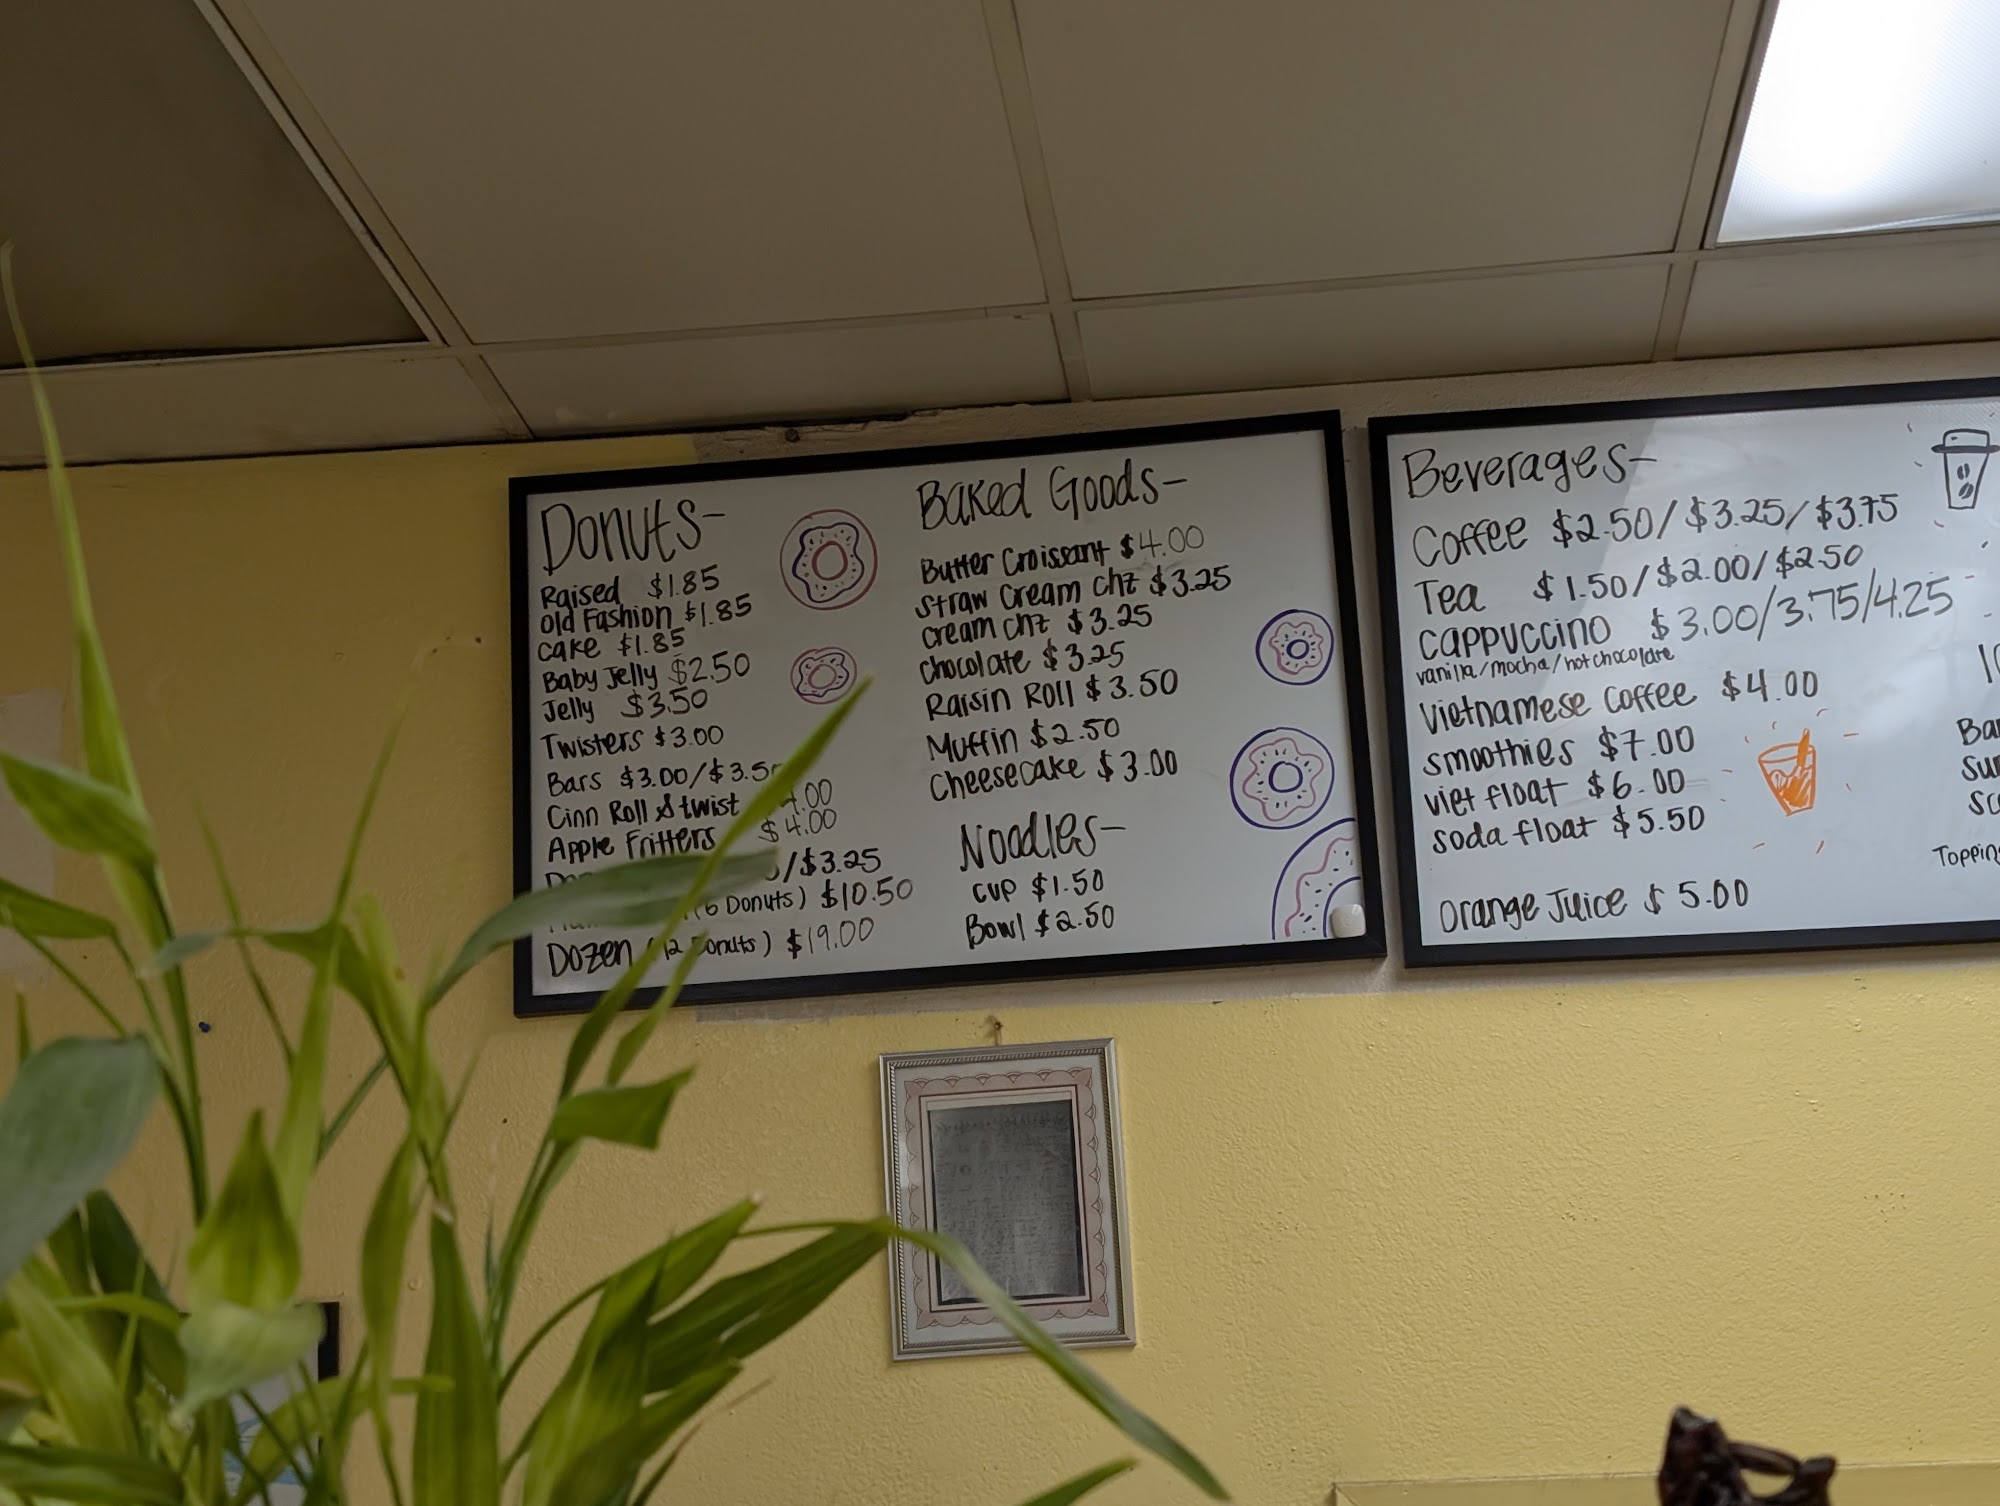 Donuts-
Raised $1.85
Old Fashion $1.85
Cake $1.85
Baby Jelly $2.50
Jelly $3.50
Twisters $3.00
Bars $3.00/$3.5
Cinn Roll & twist 4.00
Apple Fritters $4.00
/$3.25
(6 Donuts) $10.50
Dozen (12 Donuts) $19.00
Baked Goods-
Butter Croissant $4.00
Straw Cream Chz $3.25
Cream Chz $3.25
Chocolate $3.25
Raisin Roll $3.50
Muffin $2.50
Cheesecake $3.00
Noodles-
Cup $1.50
Bowl $2.50
Beverages-
Coffee $2.50/$3.25/$3.75
Tea $1.50/$2.00/$2.50
Cappuccino $3.00/3.75/4.25
vanilla/mocha/hot chocolate
Vietnamese Coffee $4.00
Smoothies $7.00
Viet float $6.00
Soda float $5.50
Orange Juice $5.00